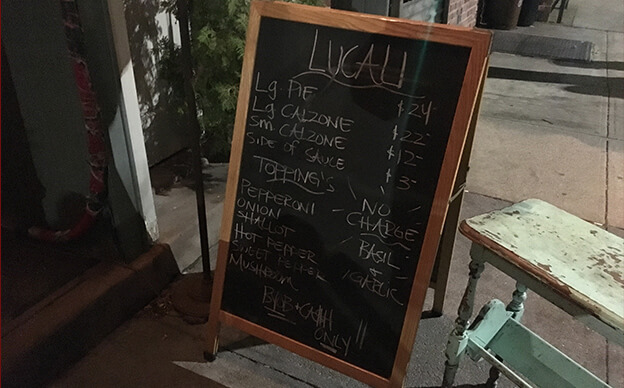 LUCALI
Lg PIE $24
Lg CALZONE $22
Sm. CALZONE $12-
SIDE OF SAUCE $3-
TOPPING's
PEPPERONI
ONION
SHALLOT
HOT PEPPER
SWEET PEPPER
MUSHROOM
NO
CHARGE
BASIL
&
GARLIC
BYOB + CA$H
ONLY!!